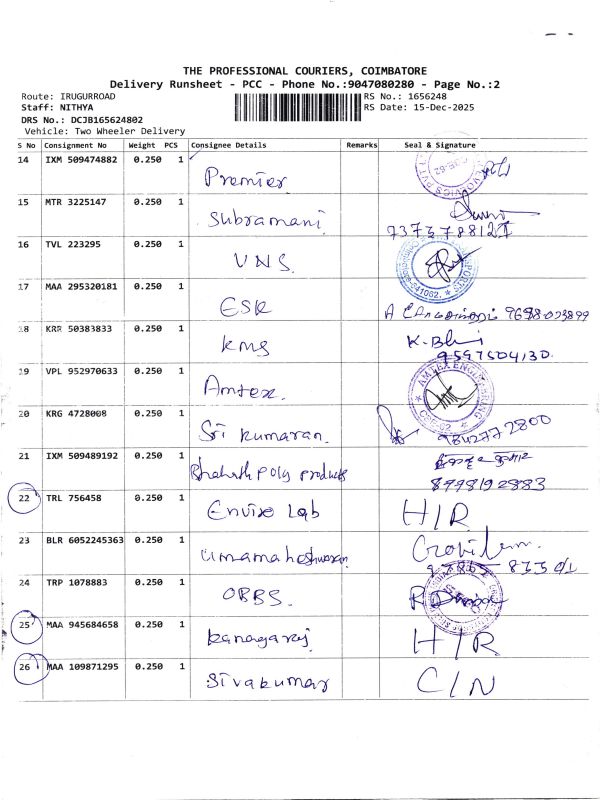 THE PROFESSIONAL COURIERS, COIMBATORE
Delivery Runsheet - PCC - Phone No.:9047080280 - Page No.:2
Route: IRUGURROAD RS No.: 1656248
Staff: NITHYA RS Date: 15-Dec-2025
DRS No.: DCJB165624802
Vehicle: Two Wheeler Delivery
S No Consignment No Weight PCS Consignee Details Remarks Seal & Signature
14 IXM 509474882 0.250 1 Premier
15 MTR 3225147 0.250 1 Subramani
7373788127
16 TVL 223295 0.250 1 VNS
17 MAA 295320181 0.250 1 ESK
18 KRR 50383833 0.250 1 kmg K. Bhi
9597504130
19 VPL 952970633 0.250 1 Amtex
20 KRG 4728008 0.250 1 Sri kumaran
9842772800
21 IXM 509489192 0.250 1 Bharath poly products
8998192883
22 TRL 756458 0.250 1 Enviro Lab H/R
23 BLR 6052245363 0.250 1 umamaheshwaran
24 TRP 1078883 0.250 1 OBBS.
25 MAA 945684658 0.250 1 kanagaraj H/R
26 MAA 109871295 0.250 1 Sivakumar C/N